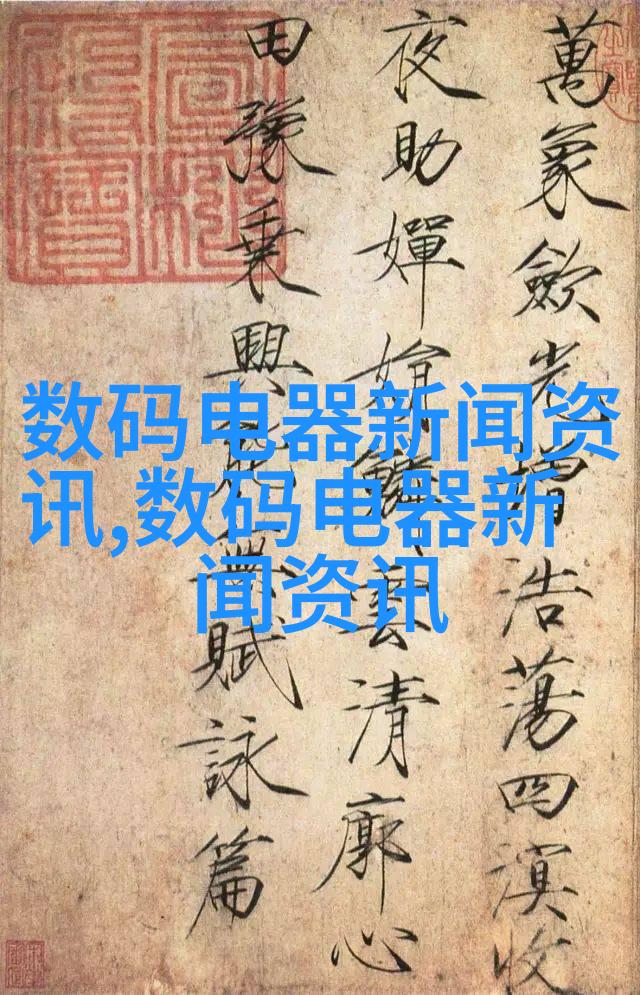 萬象歛光增浩蕩四溟收
夜助嬋娟鱗雲清廓心
田豫乗興能無賦詠篇
数码电器新闻资
讯,数码电器新
闻资讯